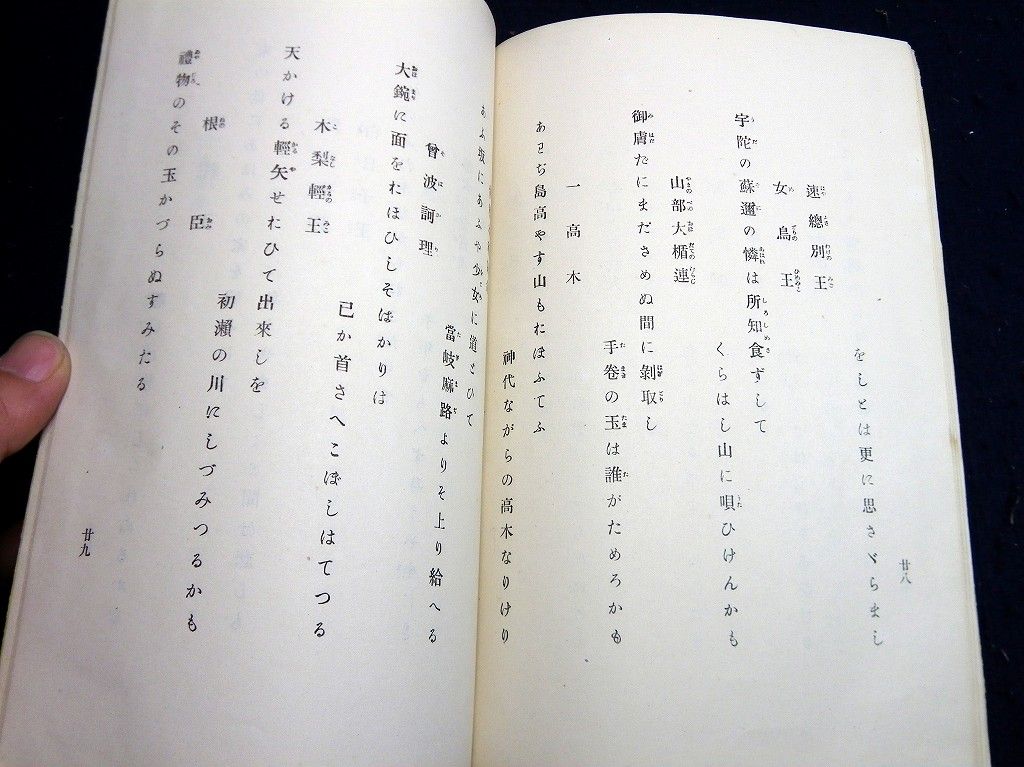 をしとは更に思さゞらまし
速總別王
女鳥王
宇陀の蘇邇の憐は所知食ずして
くらはし山に唄ひけんかも
山部大楯連
御膚たにまださめぬ間に剝取し
手卷の玉は誰がためろかも
一高木
あはぢ島高やす山もおほふてふ
神代ながらの高木なりけり
廿八
あふ坂にあふや少女に道とひて
當岐麻路よりそ上り給へる
曾波訶理
大鋺に面をおほひしそばかりは
己か首さへこぼしはてつる
木梨輕王
天かける輕矢せおひて出來しを
初瀨の川にしづみつるかも
根臣
禮物のその玉かづらぬすみたる
廿九